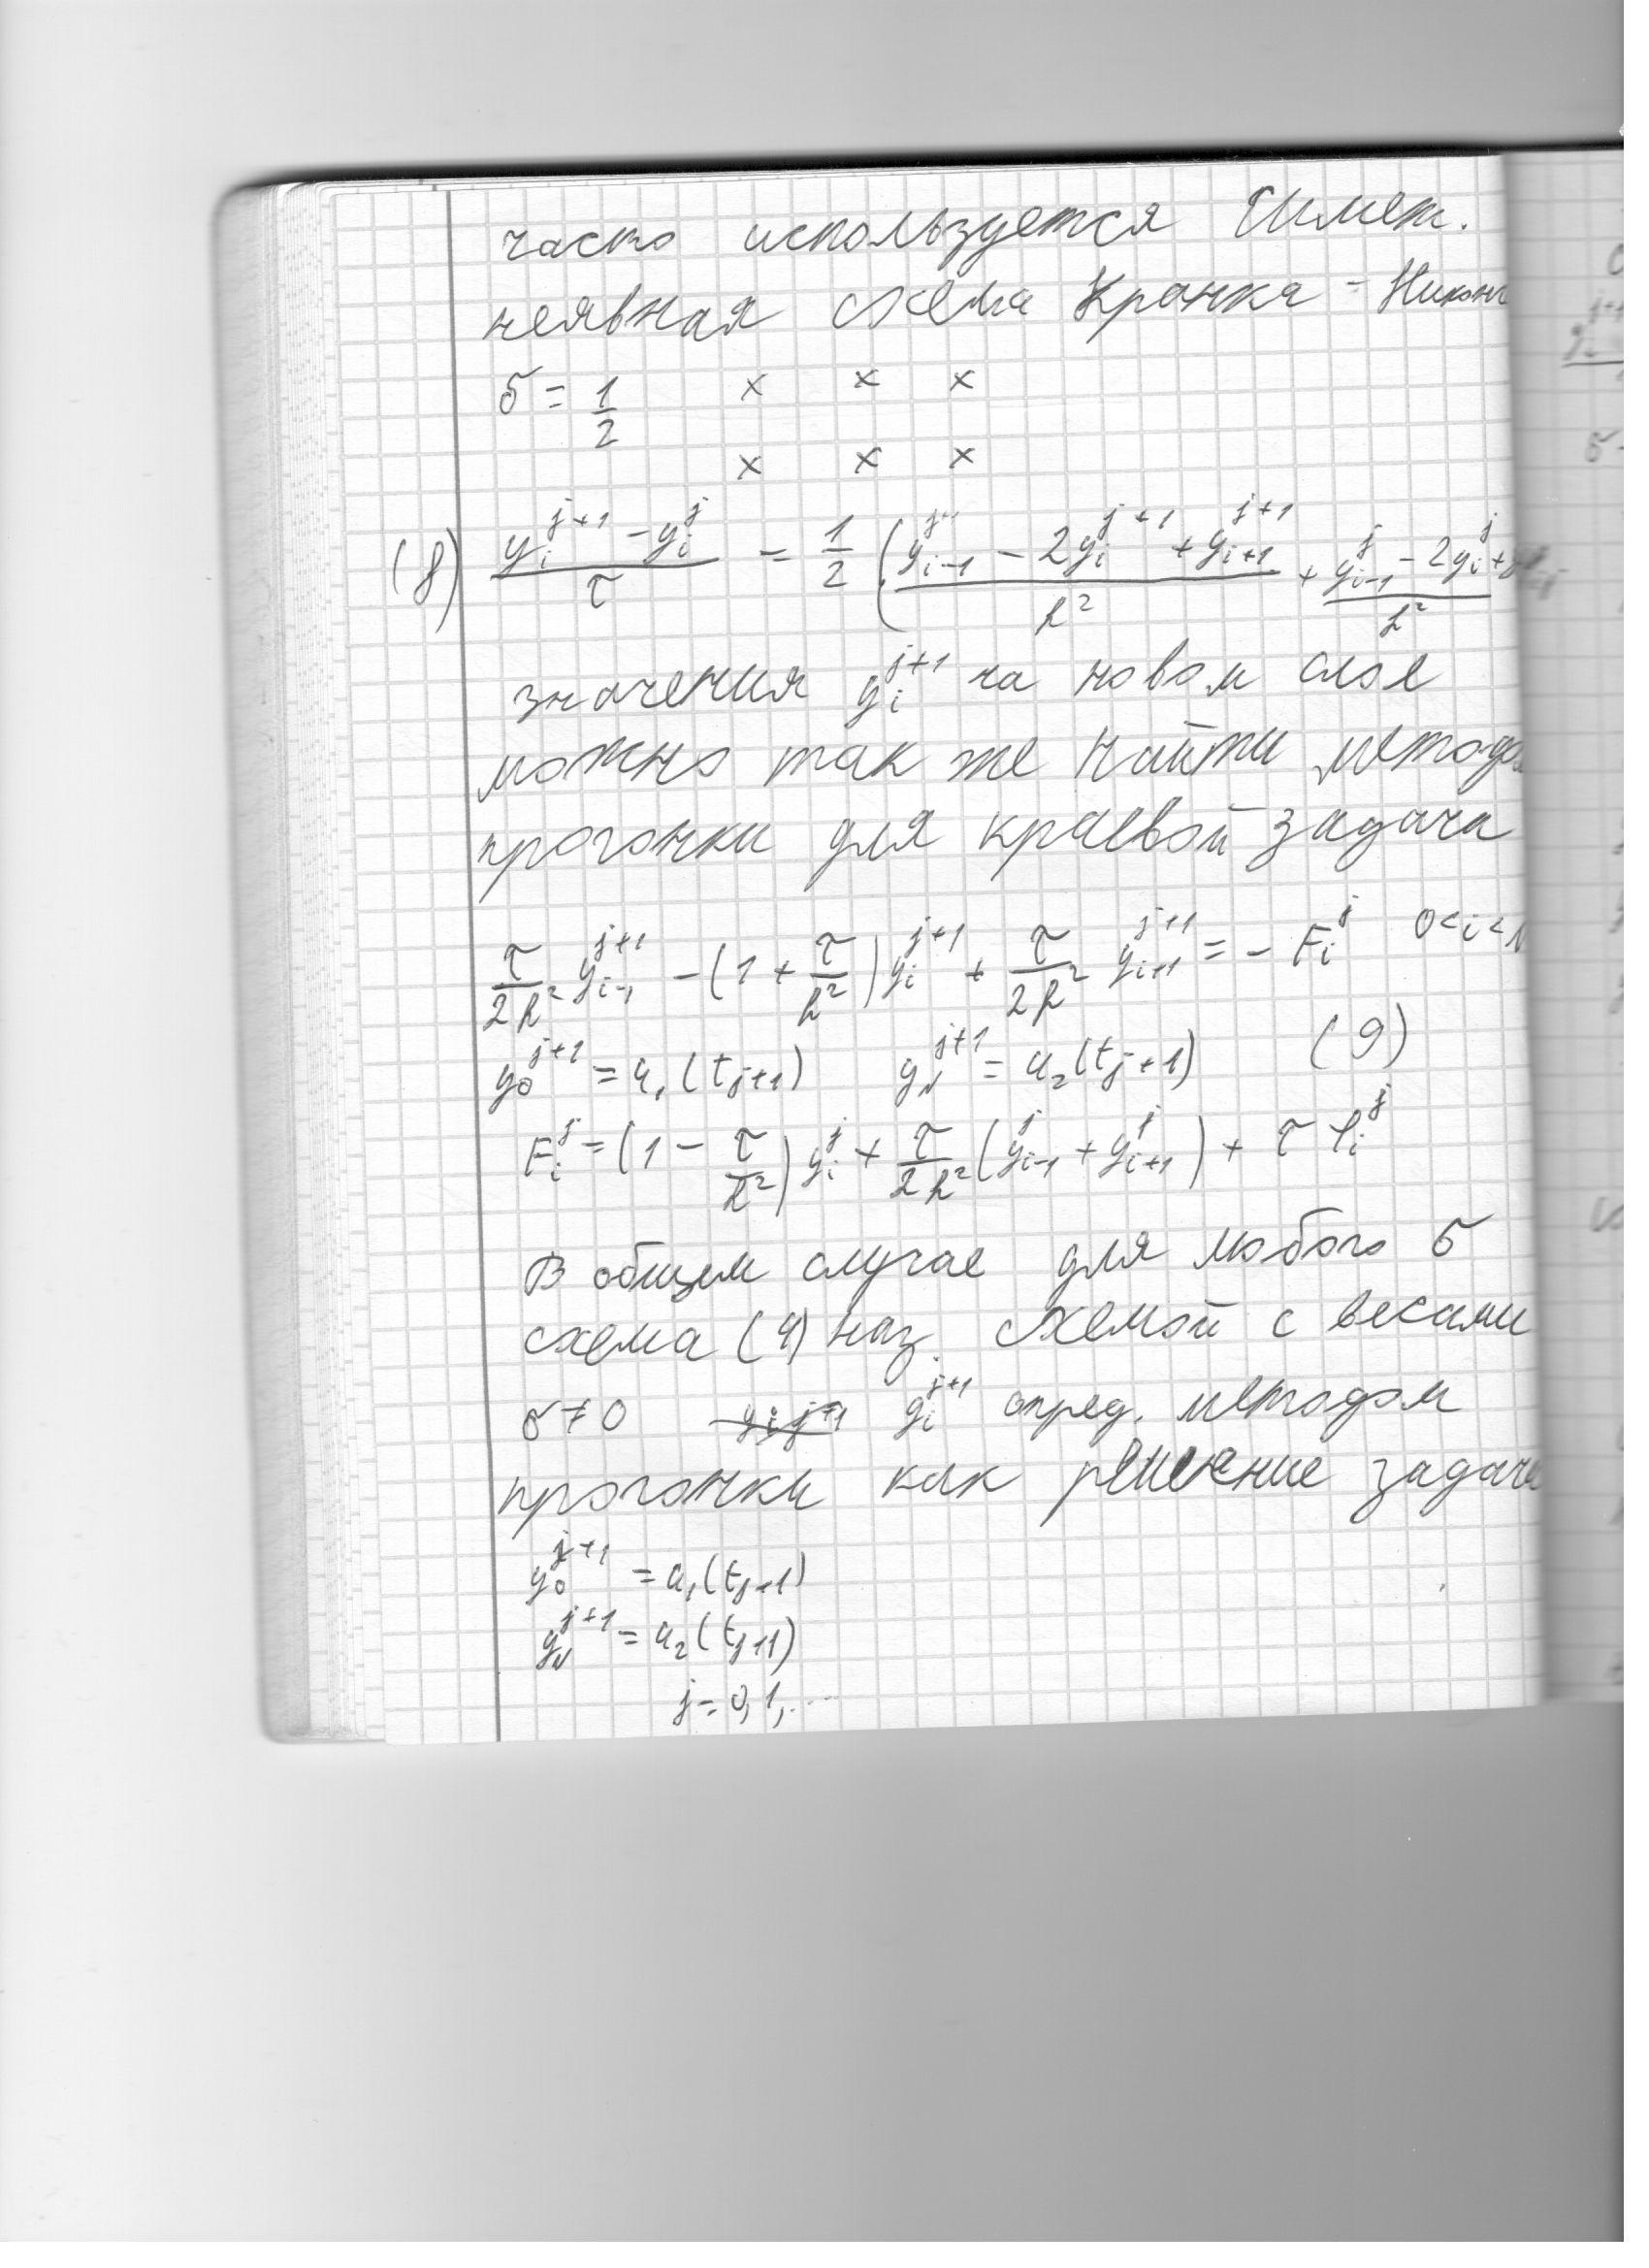 часто используется симет.
неявная схема Кранка - Никол
σ = 1/2 × × ×
× × ×
(8) (y_i^{j+1} - y_i^j)/τ = 1/2 ((y_{i-1}^{j+1} - 2y_i^{j+1} + y_{i+1}^{j+1})/h² + (y_{i-1}^j - 2y_i^j + y
значения y_i^{j+1} на новом слое
можно так же найти методом
прогонки для краевой задачи
τ/2h² y_{i-1}^{j+1} - (1 + τ/h²) y_i^{j+1} + τ/2h² y_{i+1}^{j+1} = - F_i^j 0<i<N
y_0^{j+1} = u_1(t_{j+1}) y_N^{j+1} = u_2(t_{j+1}) (9)
F_i^j = (1 - τ/h²) y_i^j + τ/2h² (y_{i-1}^j + y_{i+1}^j) + τ f_i^j
В общем случае для любого σ
схема (4) наз. схемой с весами
σ ≠ 0 y_i^{j+1} опред. методом
прогонки как решение задачи
y_0^{j+1} = u_1(t_{j+1})
y_N^{j+1} = u_2(t_{j+1})
j = 0, 1, ...